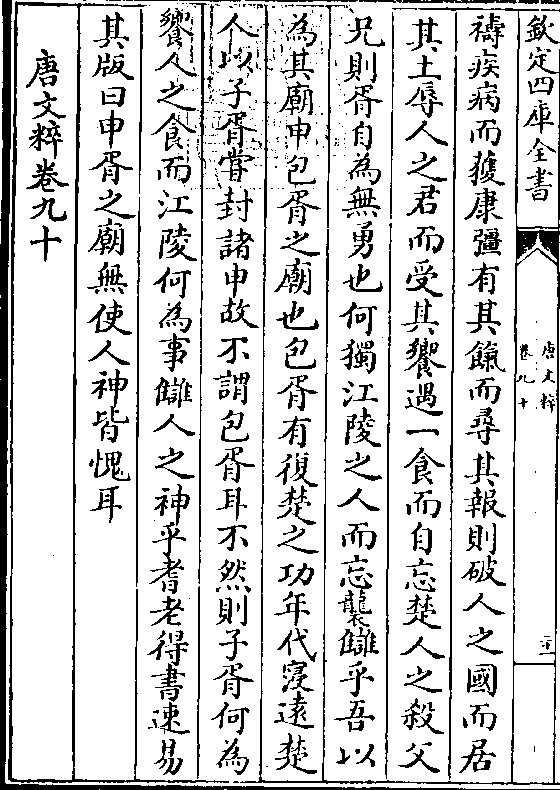 欽定四庫全書
唐文粹
卷九十
二十一
禱疾病而獲康彊有其餼而尋其報則破人之國而居
其土辱人之君而受其饗遇一食而自忘楚人之殺父
兄則胥自為無勇也何獨江陵之人而忘襲讎乎吾以
為其廟申包胥之廟也包胥有復楚之功年代寖遠楚
人以子胥嘗封諸申故不謂包胥耳不然則子胥何為
饗人之食而江陵何為事讎人之神乎耆老得書速易
其版曰申胥之廟無使人神皆愧耳
唐文粹卷九十